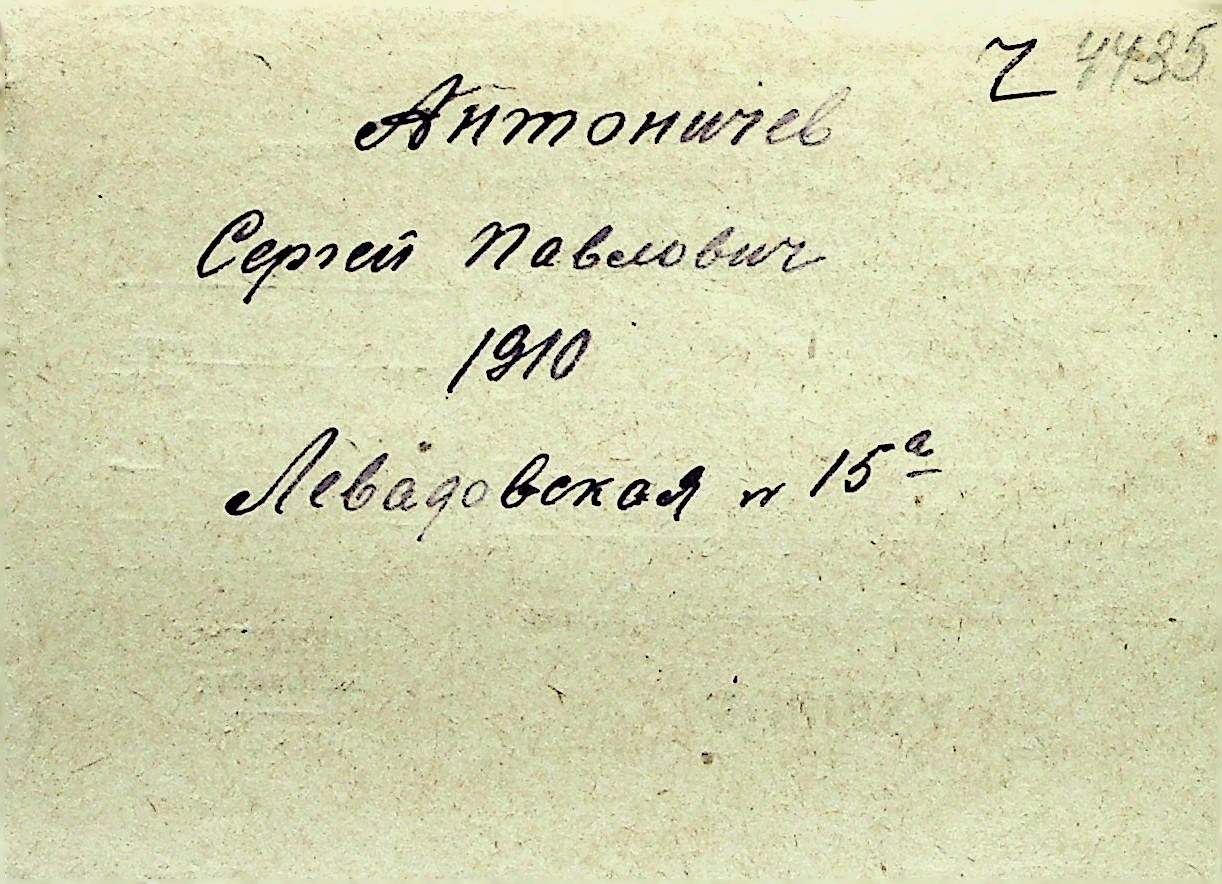 4435
Антоничев
Сергей Павлович
1910
Левадовская № 15а